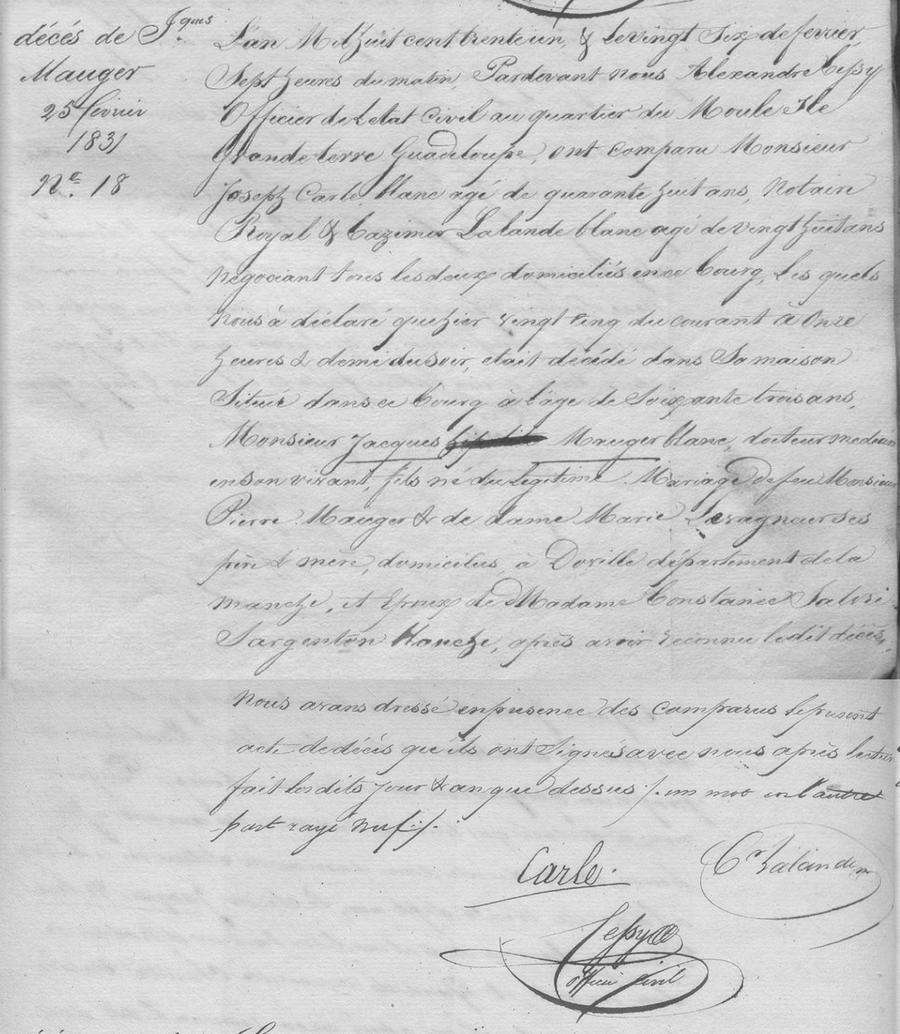 décés de Jques
Mauger
25 février
1831
Ne. 18
L'an Mil huit cent trente un, & le vingt Six de fevrier
Sept heures du matin, Pardevant nous Alexandre Cepsy
Officier de L'etat Civil au quartier du Moule Ile
Grande terre Guadeloupe, ont comparu Monsieur
Joseph Carle blanc agé de quarante huit ans, Notaire
Royal & Cazimir Lalande blanc agé de vingt huit ans
négociant tous les deux domiciliés en ce bourg, Les quels
nous à déclaré que hier vingt Cinq du courant à Onze
heures & demi du soir, etait décédé dans Sa maison
Située dans ce bourg à l'age de Soixante trois ans,
Monsieur Jacques Mauger blanc, docteur medecin
en son vivant, fils né du Légitime Mariage de feu Monsieur
Pierre Mauger & de dame Marie
père & mere, domiciliés, à Doville département de la
manche, et Epoux de Madame Constance
Sargenton blanche, après avoir reconnu le dit décés,
nous avons dressé en presence des comparus le present
acte de décés qu'ils ont Signés avec nous après lecture
fait les dits jour & an que dessus /. un mot en l'autre
part rayé nul /.
Carle
C Lalande
Cepsy
officier civil